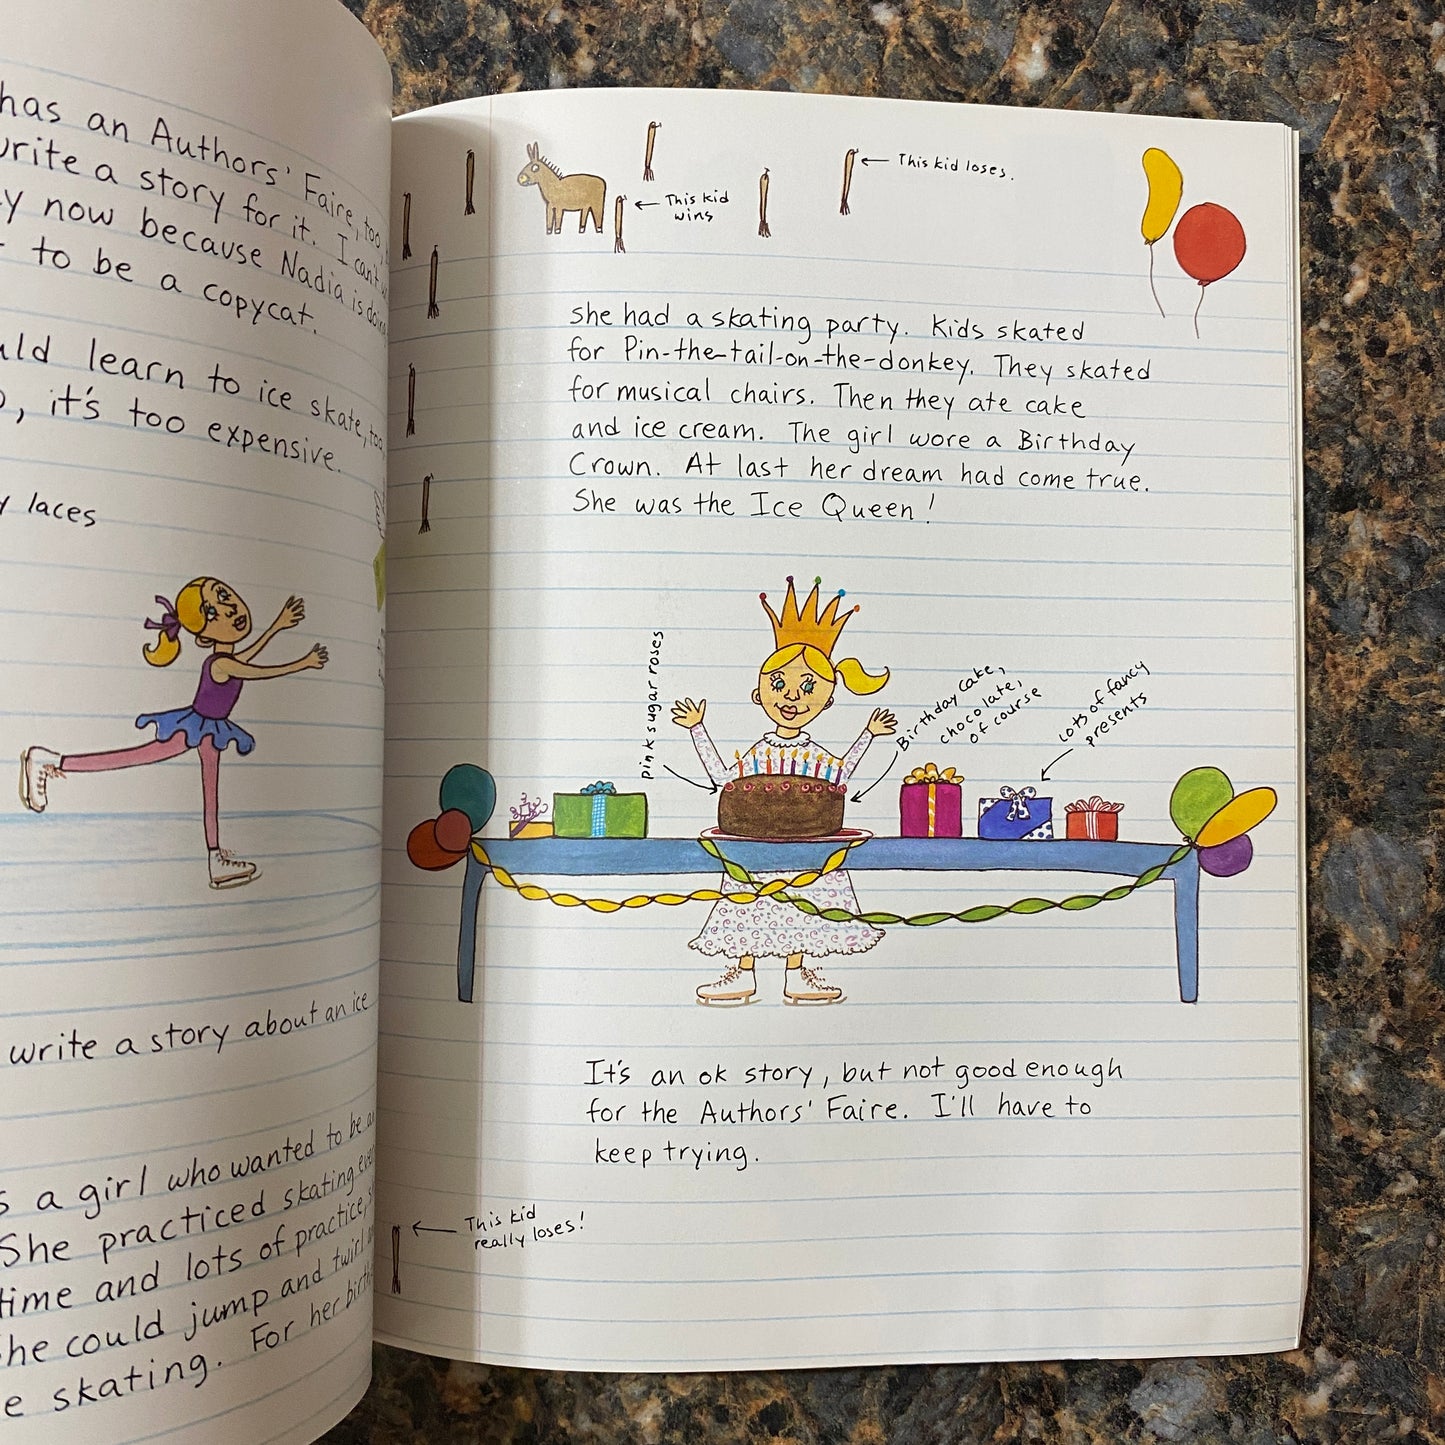 has an Authors' Faire, too,
write a story for it. I can't
now because Nadia is doing
to be a copycat.
learn to ice skate, too,
it's too expensive.
laces
write a story about an ice
a girl who wanted to be
She practiced skating
time and lots of practice,
she could jump and twirl
skating. For her
This kid loses.
This kid
wins
she had a skating party. Kids skated
for Pin-the-tail-on-the-donkey. They skated
for musical chairs. Then they ate cake
and ice cream. The girl wore a Birthday
Crown. At last her dream had come true.
She was the Ice Queen!
pink sugar roses
Birthday cake,
chocolate,
of course
Lots of fancy
presents
It's an ok story, but not good enough
for the Authors' Faire. I'll have to
keep trying.
This kid
really loses!